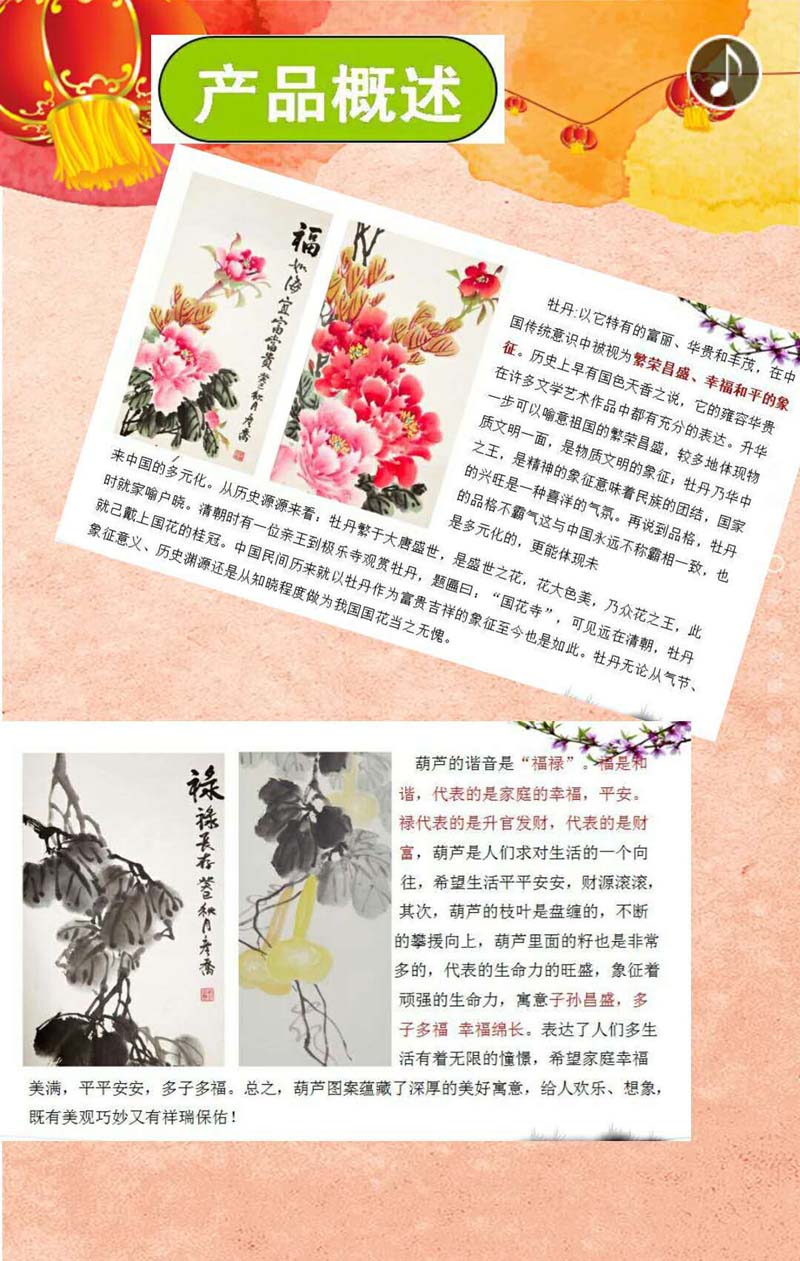 产品概述
福
如海宜富富贵
癸巳秋月彦喬
牡丹:以它特有的富丽、华贵和丰茂，在中
国传统意识中被视为繁荣昌盛、幸福和平的象
征。历史上早有国色天香之说，它的雍容华贵
在许多文学艺术作品中都有充分的表达。升华
一步可以喻意祖国的繁荣昌盛，较多地体现物
质文明一面，是物质文明的象征；牡丹乃华中
之王，是精神的象征意味着民族的团结，国家
的兴旺是一种喜洋的气氛。再说到品格，牡丹
的品格不霸气这与中国永远不称霸相一致，也
是多元化的，更能体现未
来中国的多元化。从历史源源来看：牡丹繁于大唐盛世，是盛世之花，花大色美，乃众花之王，此
时就家喻户晓。清朝时有一位亲王到极乐寺观赏牡丹，题匾曰：“国花寺”，可见远在清朝，牡丹
就己戴上国花的桂冠。中国民间历来就以牡丹作为富贵吉祥的象征至今也是如此。牡丹无论从气节、
象征意义、历史渊源还是从知晓程度做为我国国花当之无愧。
禄
禄长存
癸巳秋月彦喬
葫芦的谐音是“福禄”。福是和
谐，代表的是家庭的幸福，平安。
禄代表的是升官发财，代表的是财
富，葫芦是人们求对生活的一个向
往，希望生活平平安安，财源滚滚，
其次，葫芦的枝叶是盘缠的，不断
的攀援向上，葫芦里面的籽也是非常
多的，代表的生命力的旺盛，象征着
顽强的生命力，寓意子孙昌盛，多
子多福 幸福绵长。表达了人们多生
活有着无限的憧憬，希望家庭幸福
美满，平平安安，多子多福。总之，葫芦图案蕴藏了深厚的美好寓意，给人欢乐、想象，
既有美观巧妙又有祥瑞保佑！